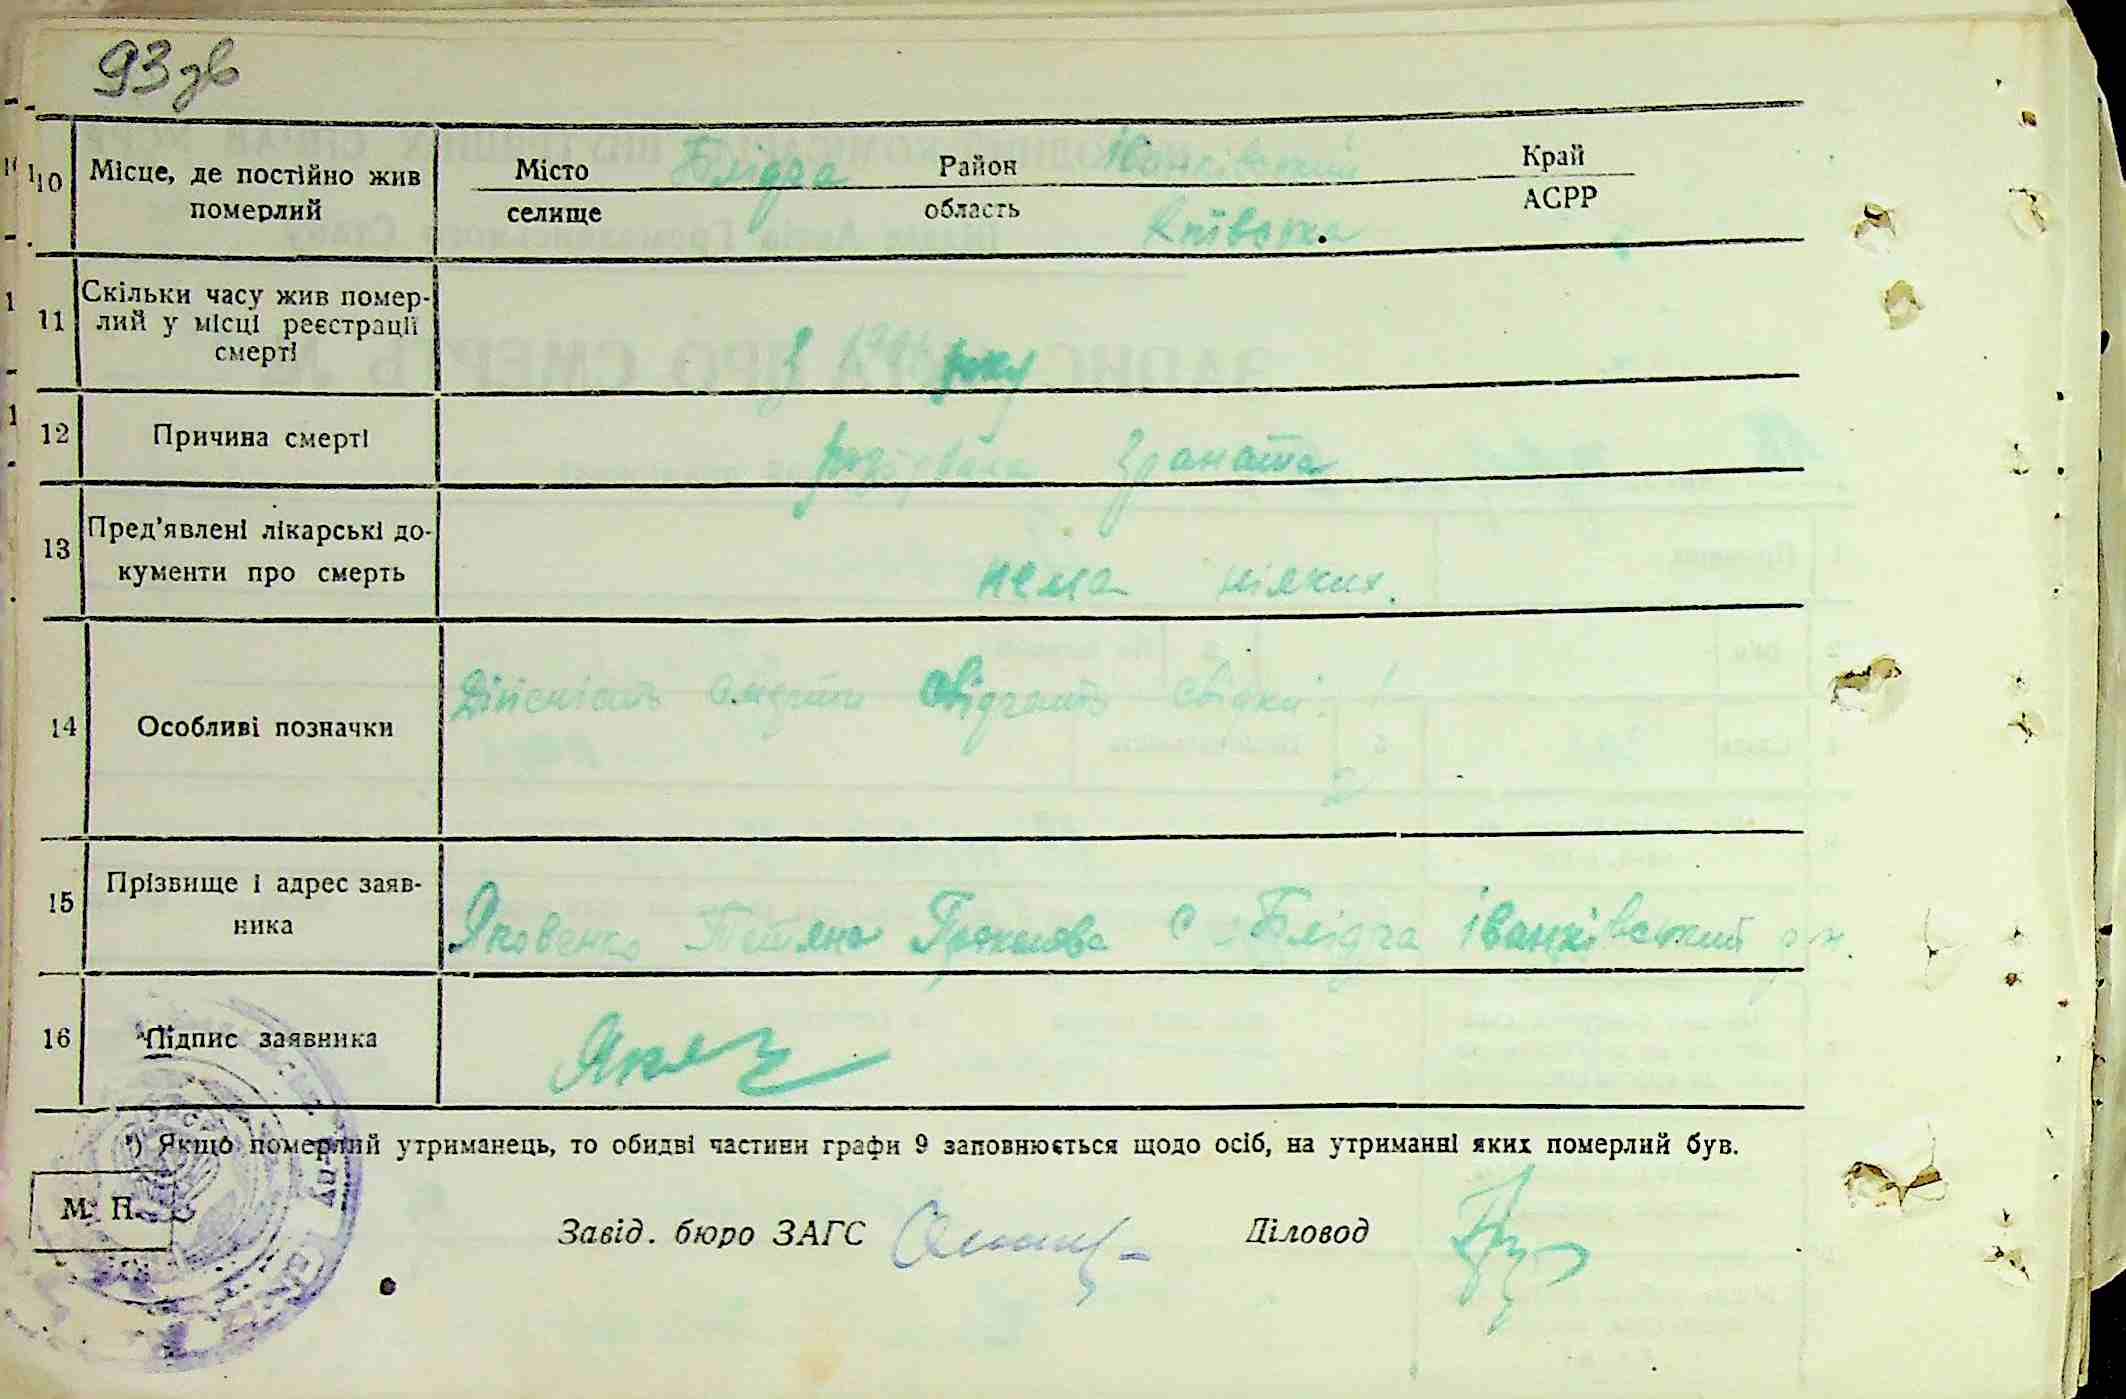 93 зв
10 Місце, де постійно жив померлий
Місто Блідча Район Іванківський Край
селище область Київська АСРР
11 Скільки часу жив помер-
лий у місці реєстрації
смерті
з року
12 Причина смерті розірвала граната
13 Пред’явлені лікарські до-
кументи про смерть
нема ніяких.
14 Особливі позначки
Дійсність смерти свідчать свідки: 1
2
15 Прізвище і адрес заяв-
ника
Яковенко Тетяна с. Блідча Іванківський р-н.
16 Підпис заявника
*) Якщо померлий утриманець, то обидві частини графи 9 заповнюється щодо осіб, на утриманні яких померлий був.
М. П.
Завід. бюро ЗАГС Діловод